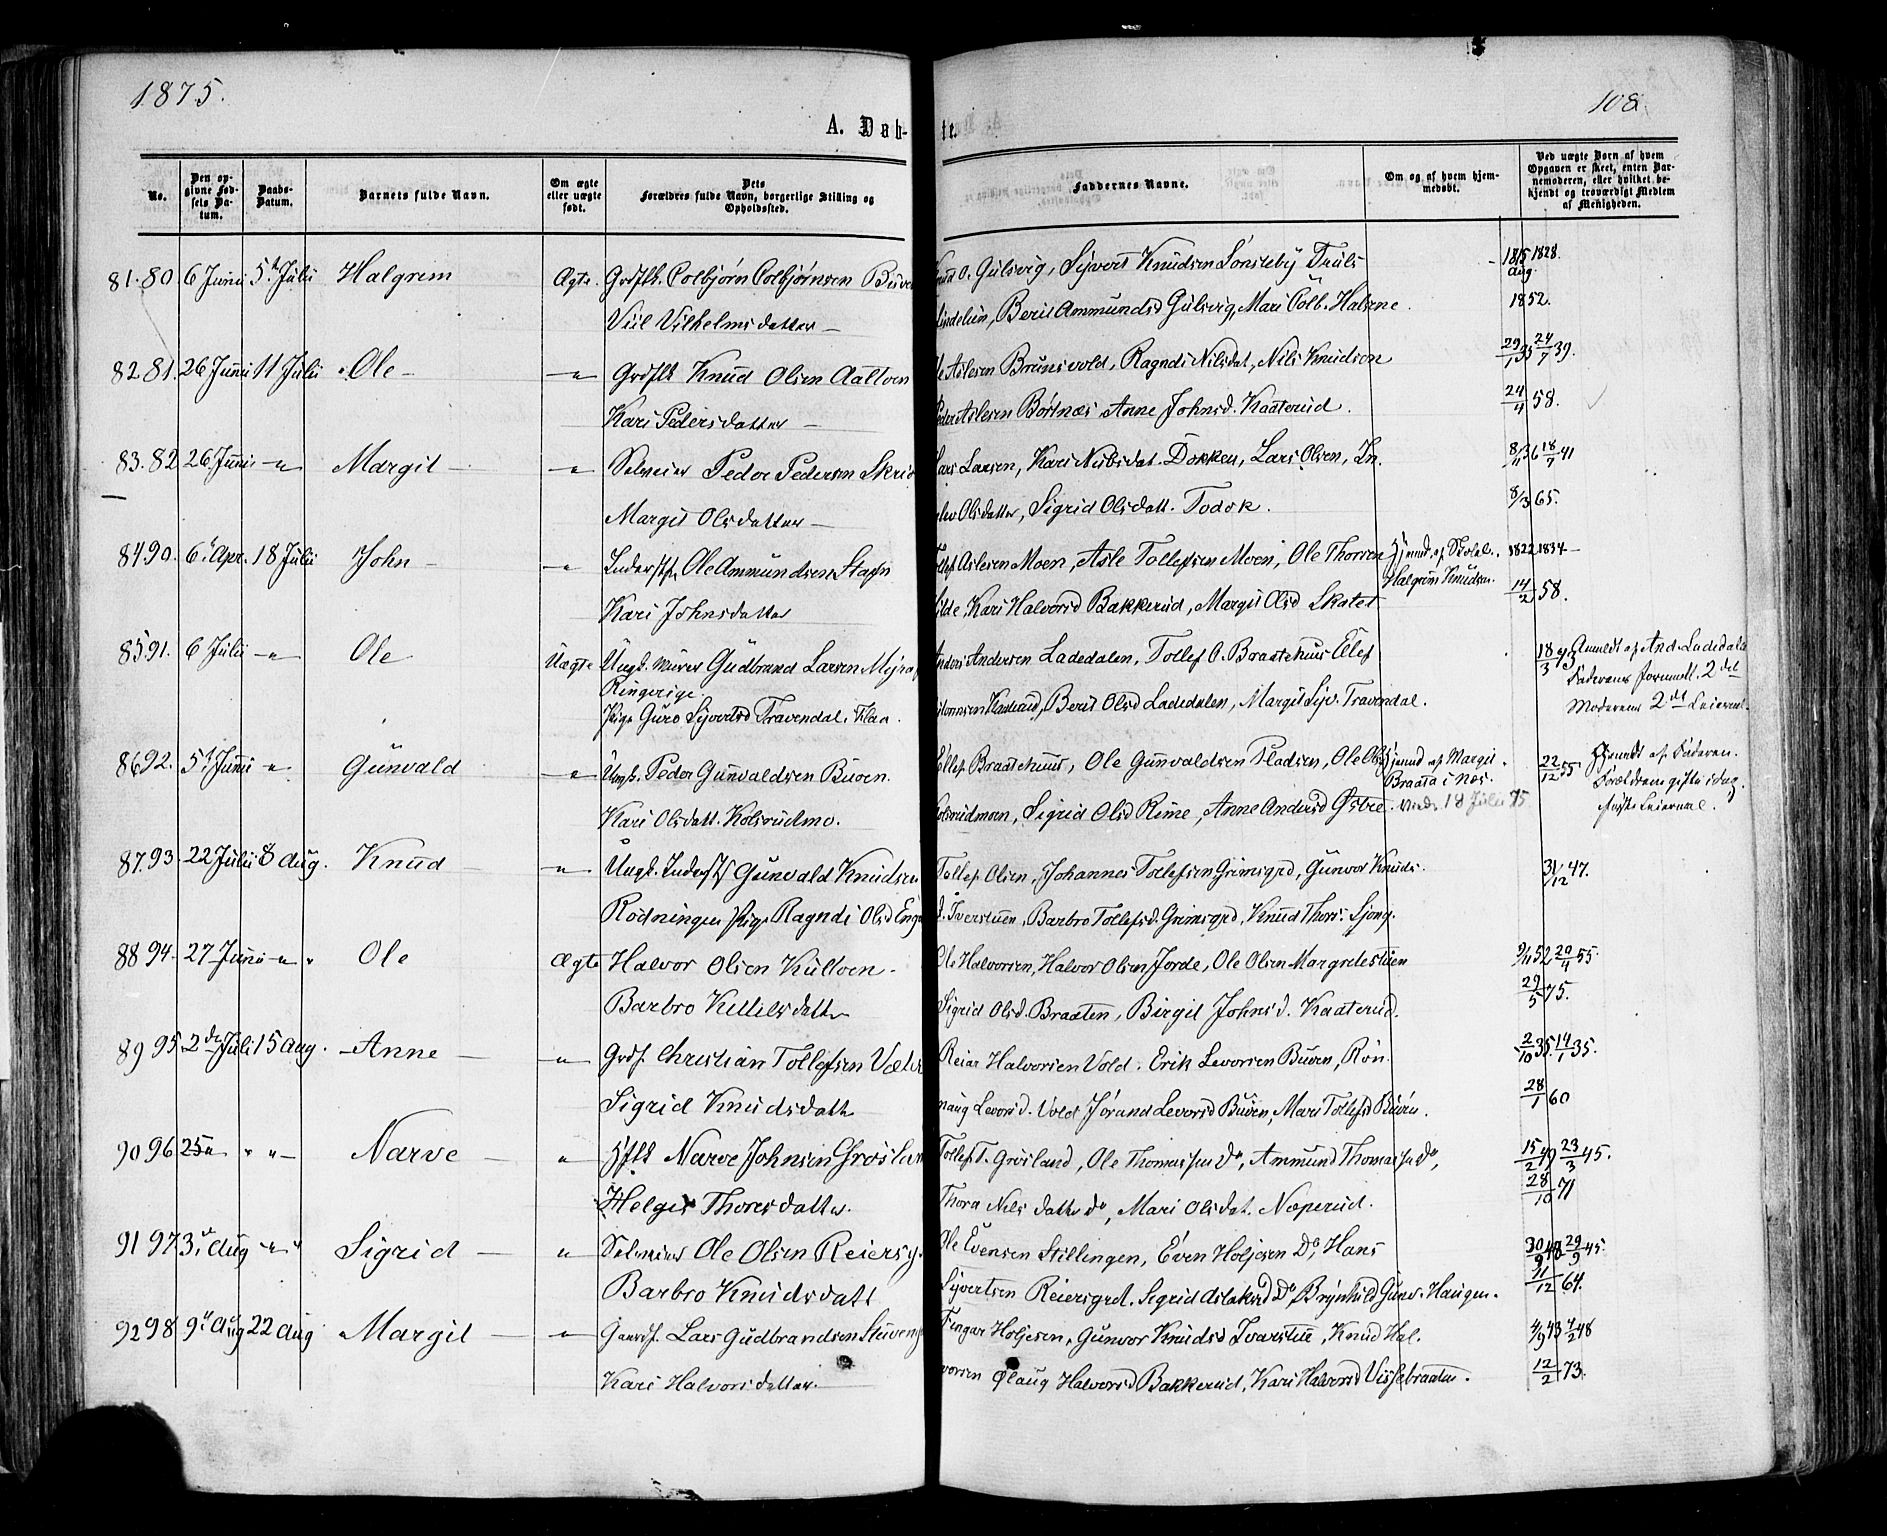 1875.
108
A. Døb-
te.
No.
Den op-
givne Fød-
sels Da-
tum.
Daabs-
Datum.
Barnets fulde Navn.
Om ægte
eller uægte
født.
Dets
Forældres fulde Navn, borgerlige Stilling og
Opholdssted.
Faddernes Navne.
Om og af hvem hjem-
medøbt.
Ved uægte Børn af hvem
Opgaven er skeet, enten Bar-
nemoderen, eller hvilket be-
kjendt og troværdigt Medlem
af Menigheden.
81. 80 6 Juni 5te Juli Halgrim Ægte. Colbjørn Colbjørnsen O. Gulsvig, Syvert Knudsen Sønsteby Truls 1815 1828.
aug.
Vilhelmsdatter — Berit Ammundsd Gulsvig, Mari Colb. 1852.
82 81. 26 Juni 11 Juli Ole — — " Knud Olsen Aslesen Brunsvold, Ragndi Nilsdat, Nils Knudson 29/1 35 24/7 39.
Kari Pedersdatter — Aslesen Børtnæs Anne Johnsd. Kaaterud. 24/4 58.
83. 82 26 Juni — " Margit — — " Selveier Peder Pedersen Lars Larsen, Kari Nubsdat. Dokken, Lars Olsen, In. 8/11 36 18/7 41
Margit Olsdatter — Olsdatter, Sigrid Olsdatt. Todok. 8/3 65.
84 90. 6te Apr. 18 Juli John — — " Inderst Ole Ammundsen Aslesen Moen, Asle Tollefsen Moen, Ole Thorsen Hjemmd. af 1822 1834 —
Kari Johnsdatter Kari Halvorsd Bakkerud, Margit Olsd Skatet Halgrim Knudsen. 14/2 58.
85 91. 6 Juli — " Ole Uægte Ungk. Murer Gudbrand Larsen Andersen Ladedalen, Tollef O. Braatehuus Ellef 18/3 73 Anmeldt af And. Ladedalen
Ringerige. Faderens 2det
Pige Guro Syvertsd Travendal. Flaa. Berit Olsd Ladedalen, Margit Syv. Travendal. Moderens 2det Leiermaal.
86 92. 5te Juni " Gunvald — " Ungk. Peder Gunvaldsen Tollef Braatehuus, Ole Gunvaldsen Pladsen, Ole Ols Hjemmd af Margit 22/12 55 af Faderen.
Braata i Næs. Forældrene gifte i dag.
Kari Olsdatt. Kolsrudmo. Kolsrudmoen, Sigrid Olsd Rime, Anne Andersd Østre. 18 Juli 75 første Leiermaal.
87. 93. 22 Juli 8 Aug. Knud — " Ungk. Inderst Gunvald Knudsen Tollef Olsen, Johannes Tollefsen Grimsgrd, Gunvor Knuds. 31/12 47.
Rodningen Pige Ragndi Olsd Iverstuen, Barbro Tollefsd. Grimsgrd, Knud Thors.
88 94. 27 Juni — " Ole Ægte Halvor Olsen Ole Halvorsen, Halvor Olsen Jorde, Ole Olsen Margretestuen 9/11 52 20/4 55.
Barbro Kittilsdatter Sigrid Olsd. Braaten, Birgit Johnsd. Kaaterud. 29/5 75.
89 95 2den Juli 15 Aug. — Anne — — " Grdf. Christian Tollefsen Reiar Halvorsen Vold. Erik Levorsen Buøen, Røn. 2/10 35. 14/1 35.
Sigrid Knudsdatt. naug Levorsd. Vold Jørand Levorsd Buøen, Mari Tollefsd Buøen. 28/1 60
90 96 25 " " " — Narve — " Narve Johnsen Tollef T. Grøsland, Ole Thomassen Do, Ammund Thomassen Do, 15/2 49 23/3 45.
Helge Thoresdatter. Thora Nilsdatter Do, Mari Olsdat. Næperud. 28/10 71
91 97 3die Aug " " Sigrid — " Selveier Ole Olsen Ole Evensen Stillingen, Even Holjesen Do, Hans 30/9 48 29/9 45.
Barbro Knudsdatt Syvertsen Reiersgrd. Sigrid Aslaksd Do, Brynhild Gunv. Haugen. 11/12 64.
92 98 9de Aug 22 Aug Margit — — " Gaardf. Lars Gudbrandsen Holjesen, Gunvor Knudsd Ivarstue, Knud Hal. 4/9 43 4/2 48
Kari Halvorsdatter. vorsen Øelaug Halvorsd Bakkerud, Kari Halvorsd Vissebraaten. 12/2 73.